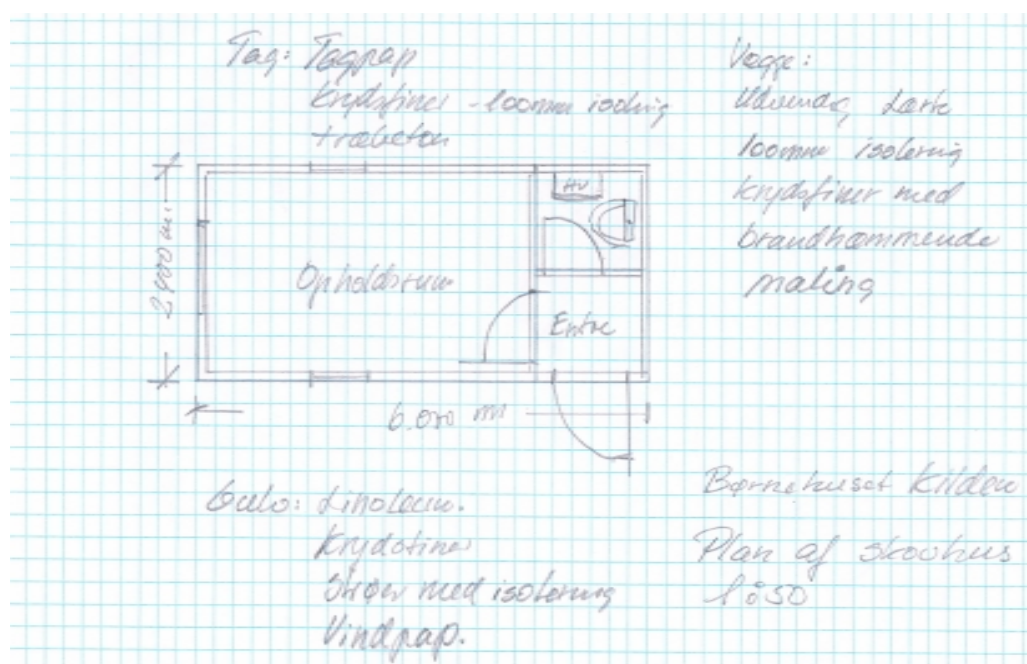 Tag: Tagpap
Krydsfiner - 100mm isolering
træbeton
Vægge:
Udvendig Lærk
100mm isolering
krydsfiner med
brandhæmmende
maling
HV
2400 mm
Opholdsrum
Entre
6.000 mm
Gulv: Linoleum.
Krydsfiner
Strøer med isolering
Vindpap.
Børnehuset Kilden
Plan af skovhus
1:50